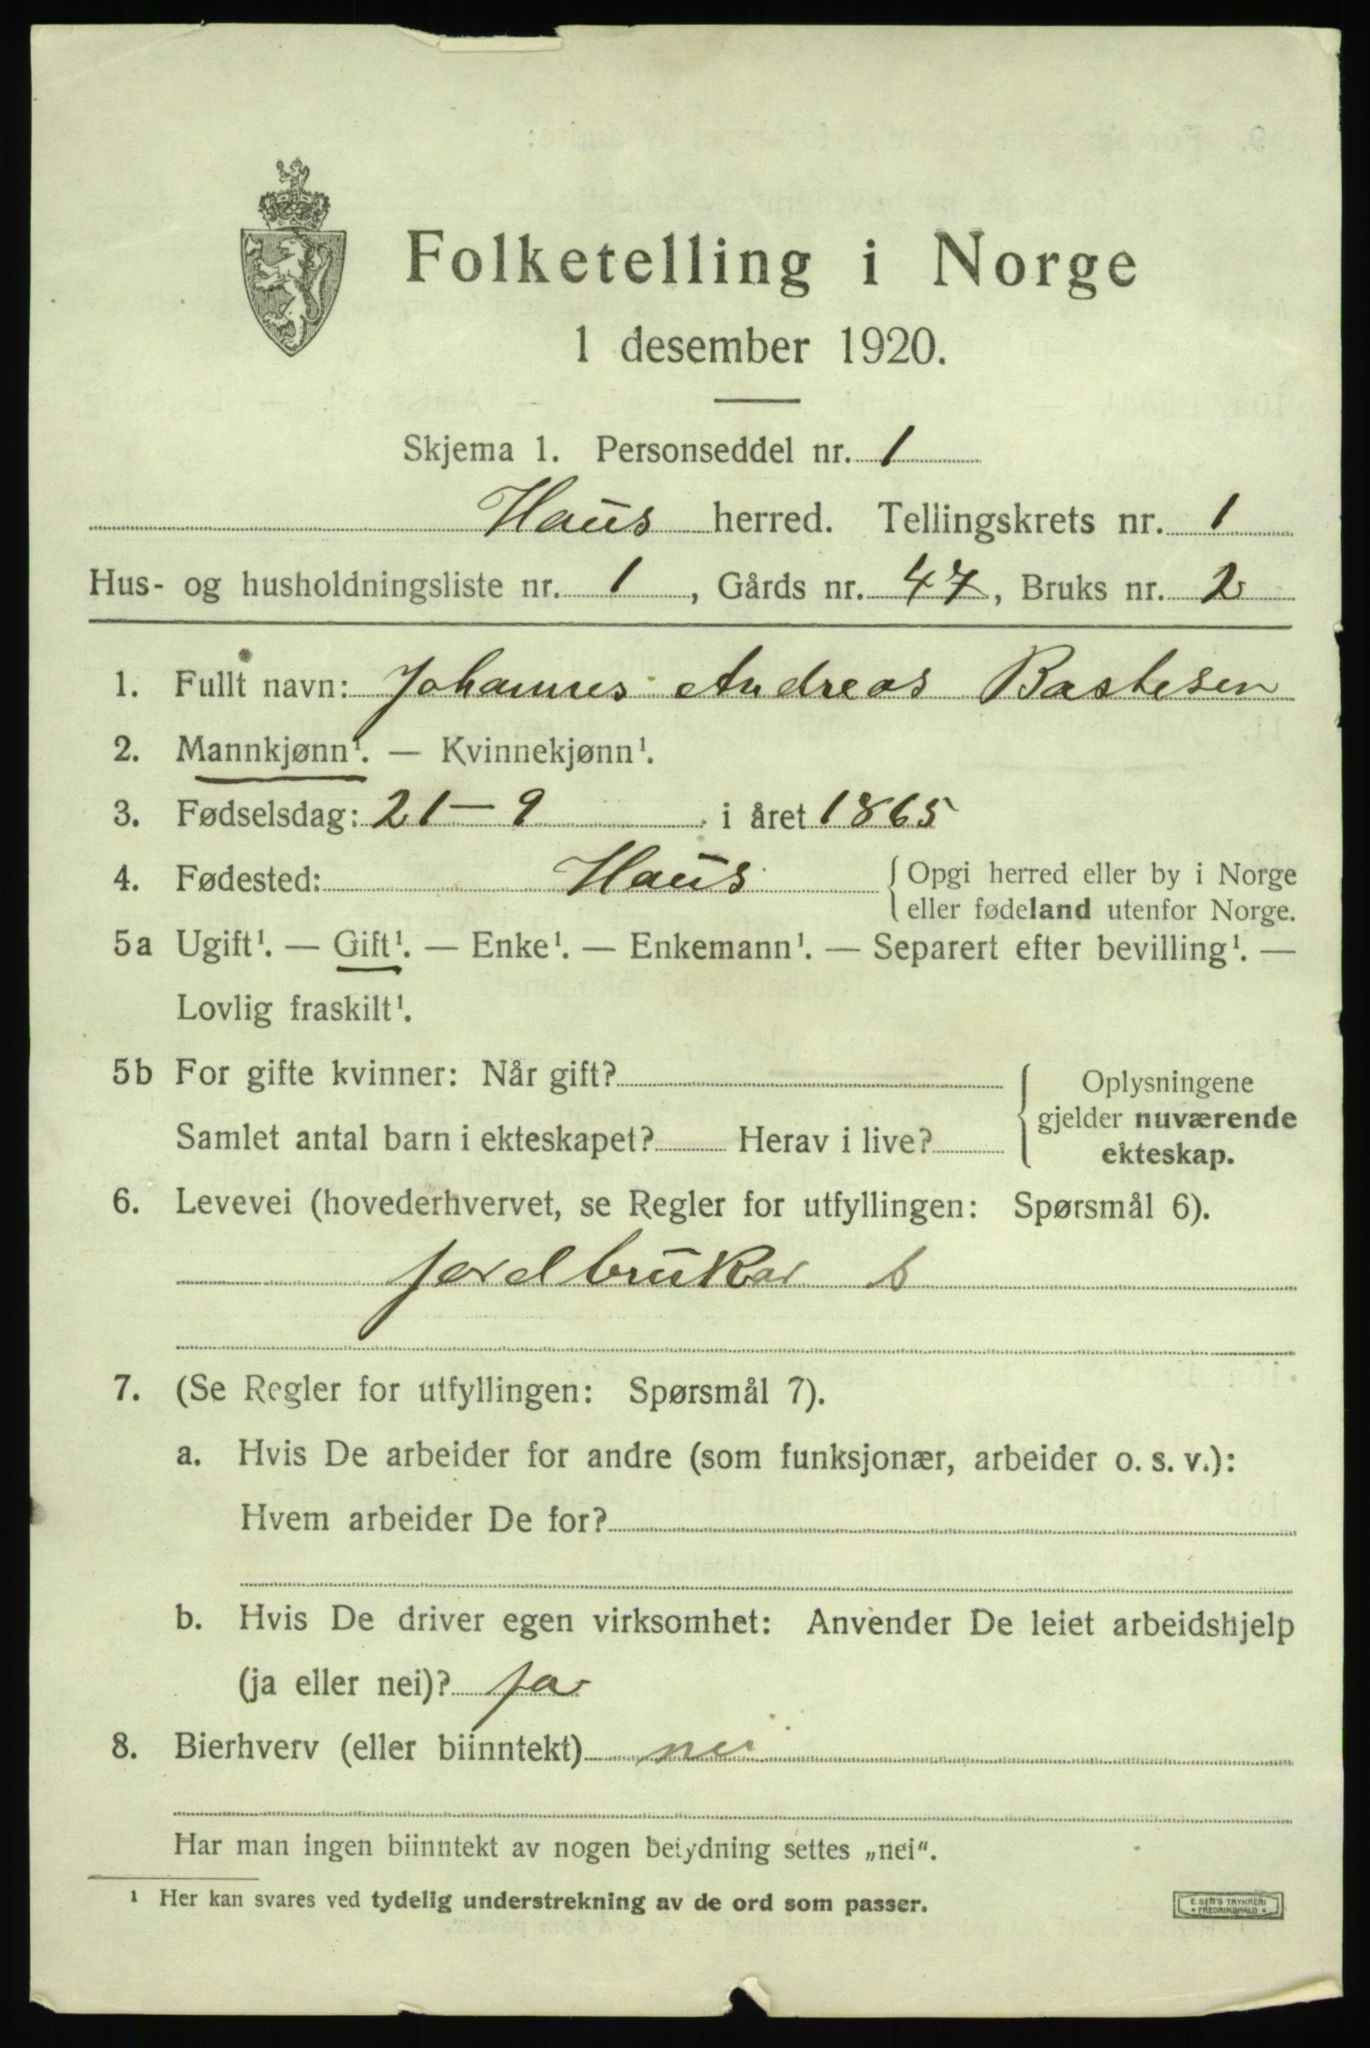 Folketelling i Norge
1 desember 1920.
Skjema 1. Personseddel nr. 1
Haus herred. Tellingskrets nr. 1
Hus- og husholdningsliste nr. 1, Gårds nr. 47, Bruks nr. 2
1. Fullt navn: Johannes Andreas Bastesen
2. Mannkjønn¹. — Kvinnekjønn¹.
3. Fødselsdag: 21-9 i året 1865
4. Fødested: Haus { Opgi herred eller by i Norge
eller fødeland utenfor Norge.
5a Ugift¹. — Gift¹. — Enke¹. — Enkemann¹. — Separert efter bevilling¹. —
Lovlig fraskilt¹.
5b For gifte kvinner: Når gift? { Oplysningene
gjelder nuværende
Samlet antal barn i ekteskapet? Herav i live? ekteskap.
6. Levevei (hovederhvervet, se Regler for utfyllingen: Spørsmål 6).
jordbrukar s
7. (Se Regler for utfyllingen: Spørsmål 7).
a. Hvis De arbeider for andre (som funksjonær, arbeider o. s. v.):
Hvem arbeider De for?
b. Hvis De driver egen virksomhet: Anvender De leiet arbeidshjelp
(ja eller nei)? ja
8. Bierhverv (eller biinntekt) nei
Har man ingen biinntekt av nogen betydning settes „nei".
¹ Her kan svares ved tydelig understrekning av de ord som passer.
E. SEM'S TRYKKERI
FREDRIKSHALD